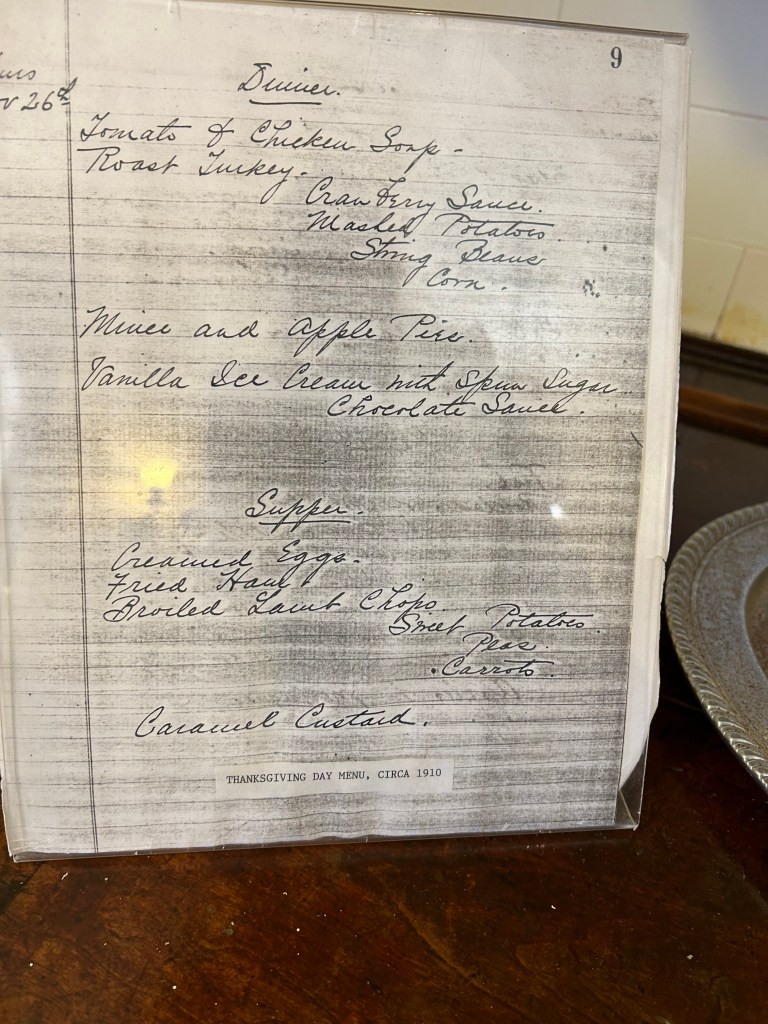 9
Nov 26th
Dinner.
Tomato & Chicken Soup -
Roast Turkey.
Cranberry Sauce.
Mashed Potatoes.
String Beans
Corn.
Mince and Apple Pies.
Vanilla Ice Cream with Spun Sugar
Chocolate Sauce.
Supper.
Creamed Eggs.
Fried Ham
Broiled Lamb Chops.
Sweet Potatoes.
Peas.
Carrots.
Caramel Custard.
THANKSGIVING DAY MENU, CIRCA 1910